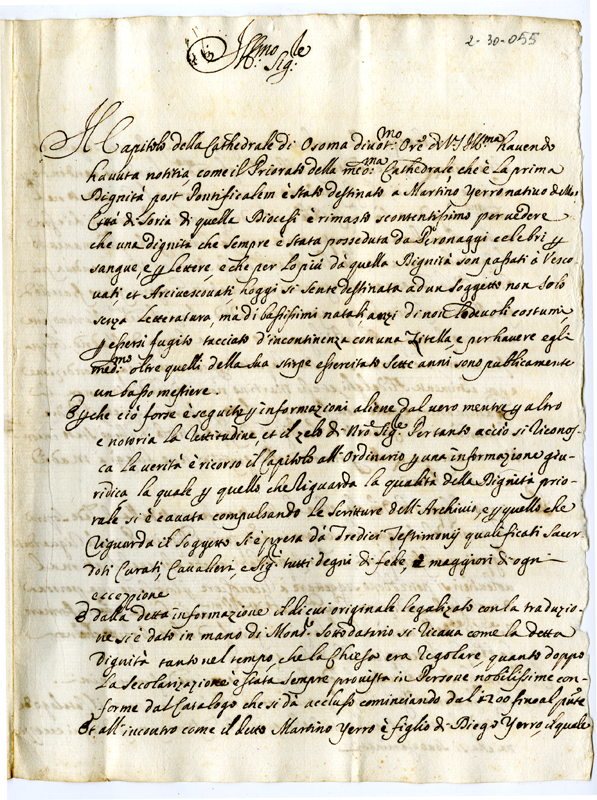 2-30-055
Ill.mo Sig.le
Il Capitolo della Cathedrale di Osoma divot.mo Ore d V.S Ill.ma havendo
havuta notitia come il Priorato della med.ma Cathedrale che è la prima
Dignità post Pontificalem è stato destinato a Martino Yerro nativo d
Città di Soria di quella Diocesi è rimasto scontentissimo per vedere
che una dignità che sempre è stata posseduta da Personaggi celebri p
sangue, e p lettere, e che per lo più da quella Dignità son passati a Vesco
vati et Arcivescovati, hoggi si sente destinata ad un soggetto non solo
senza letteratura, ma di bassissimi natali, anzi di non lodevoli costumi,
p essersi fugito tacciato d'incontinenza con una Zitella e per havere egli
med.mo oltre quelli della sua stirpe essercitato sette anni sono publicamente
un basso mestiere.
E p che ciò forse è seguito p informazioni aliene dal vero mentre p altro
è notoria la rettitudine, et il zelo di Nro Sig.re Pertanto acciò si riconos-
ca la verità è ricorso il Capitolo all'Ordinario p una informazione giu-
ridica la quale p quello che riguarda la qualità della Dignità prio-
rale si è cavata compulsando le scritture dell'Archivio, e p quello che
riguarda il soggetto si è presa da Tredici Testimonij qualificati Sacer-
doti Curati, Cavalieri, e Sig.ri tutti degni di fede, e maggiori di ogni
eccezzione
E dalla detta informazione il di cui originale legalizato con la traduzio-
ne si è dato in mano di Mons.r Sottodatario si ricava come la detta
Dignità tanto nel tempo, che la Chiesa era Regolare quanto doppo
la secolarizazione è stata sempre provista in Persone nobilissime con-
forme dal Catalogo che si dà accluso cominciando dal 1200 fino al pnte
Et all'incontro come il detto Martino Yerro è figlio di Diego Yerro, il quale